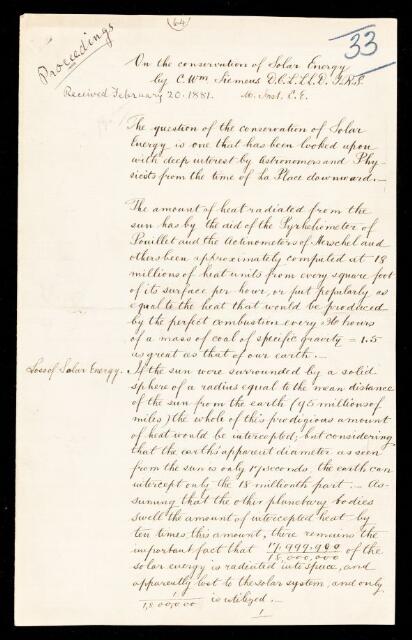 (64)
Proceedings
33
On the conservation of Solar Energy
by C. Wm Siemens D.C.L, LL.D, F.R.S.
Received February 20. 1881. M. Inst. C. E.
The question of the conservation of Solar
Energy is one that has been looked upon
with deep interest by astronomers and Phy-
sicists from the time of La Place downward. —
The amount of heat radiated from the
sun has by the aid of the Pyrheliometer of
Pouillet and the Actinometers of Herschel and
others been approximately computed at 18
millions of heat units from every square foot
of its surface per hour, or put popularly as
equal to the heat that would be produced
by the perfect combustion every 36 hours
of a mass of coal of specific gravity = 1.5
as great as that of our earth. —
Loss of Solar Energy. If the sun were surrounded by a solid
sphere of a radius equal to the mean distance
of the sun from the earth (95 millions of
miles) the whole of this prodigious amount
of heat would be intercepted; but considering
that the earth's apparent diameter as seen
from the sun is only 17 seconds, the earth can
intercept only the 18 millionth part. — As-
suming that the other planetary bodies
swell the amount of intercepted heat by
ten times this amount, there remains the
important fact that 17,999,900/18,000,000 of the
solar energy is radiated into space, and
apparently lost to the solar system, and only
1/1,800,000 is utilized. —
1